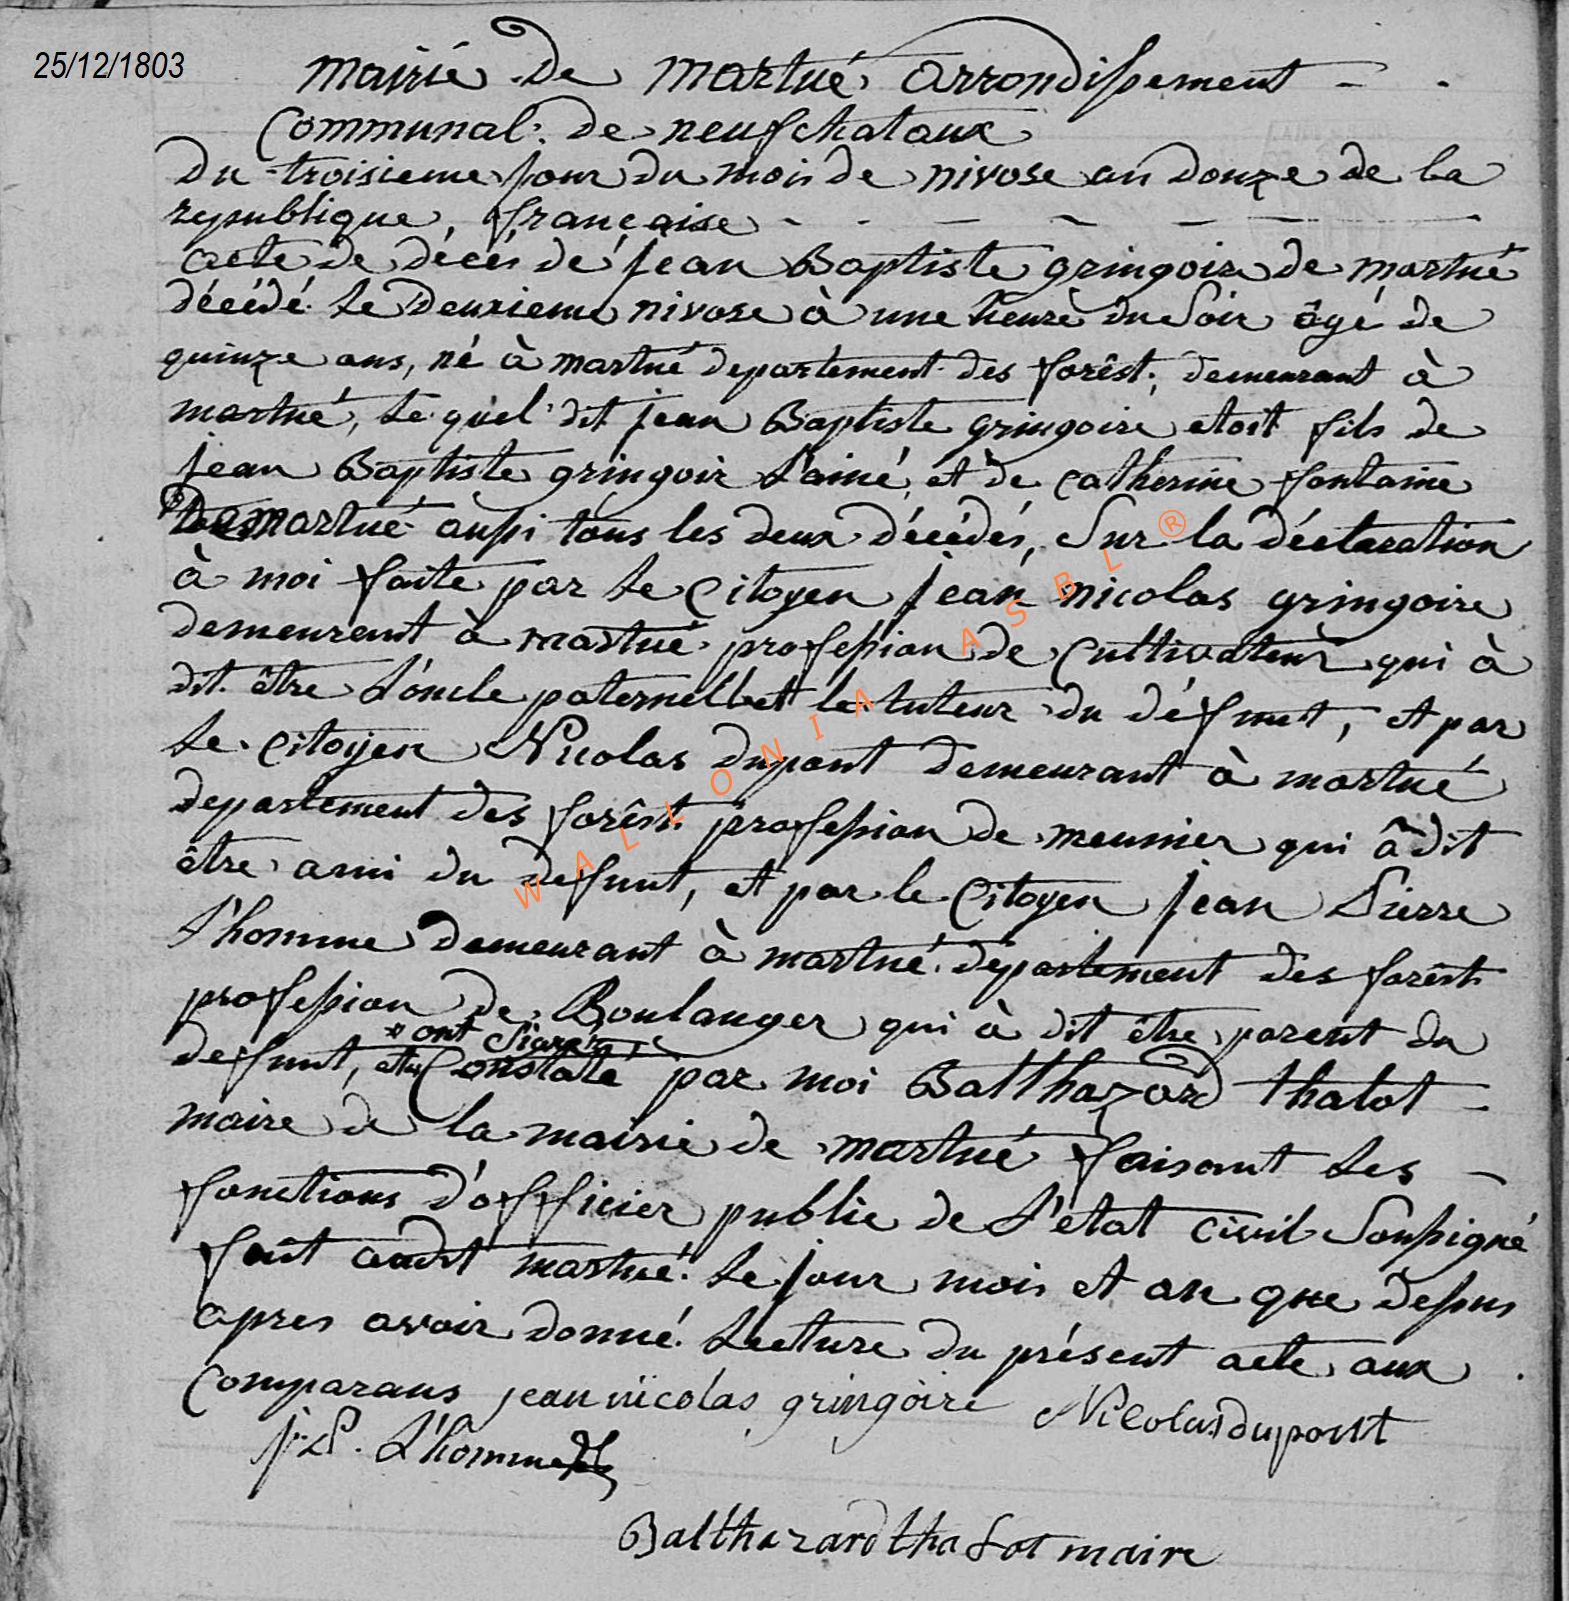 25/12/1803
mairié de martué arrondissement
Communal de neufchataux
Du troisieme jour du mois de nivose an douze de la
republique, française
acte de décés dé jean Baptiste gringoire de martué
décédé le deuxieme nivose à une heure du soir âgé de
quinze ans, né à martué departement des forêst, demeurant à
martué, le quel dit jean Baptiste gringoire etoit fils de
jean Baptiste gringoir l'ainé, et de catherine fontaine
De martué aussi tous les deux décédés, sur la déclaration
à moi faite par le citoyen jean nicolas gringoire
demeurant à martué profession de cultivateur qui à
dit être l'oncle paternell et le tuteur du défunt, et par
le citoyen Nicolas dupont demeurant à martué
departement des forêst profession de meunier qui â dit
être ami du defunt, et par le Citoyen jean Pierre
l'homme demeurant à martué département des forêst
profession de Boulanger qui à dit être parent du
* ont Signé
defunt, et Constaté par moi Balthazard thalot
maire de la mairie de martué faisant les
fonctions d'officier public de l'etat civil soussigné
fait audit martué le jour mois et an que dessus
apres avoir donné lecture du présent acte aux
Comparans jean nicolas gringoire Nicolas dupont
j. P. L'homme
Balthazard thalot maire
WALLONIA ASBL ®